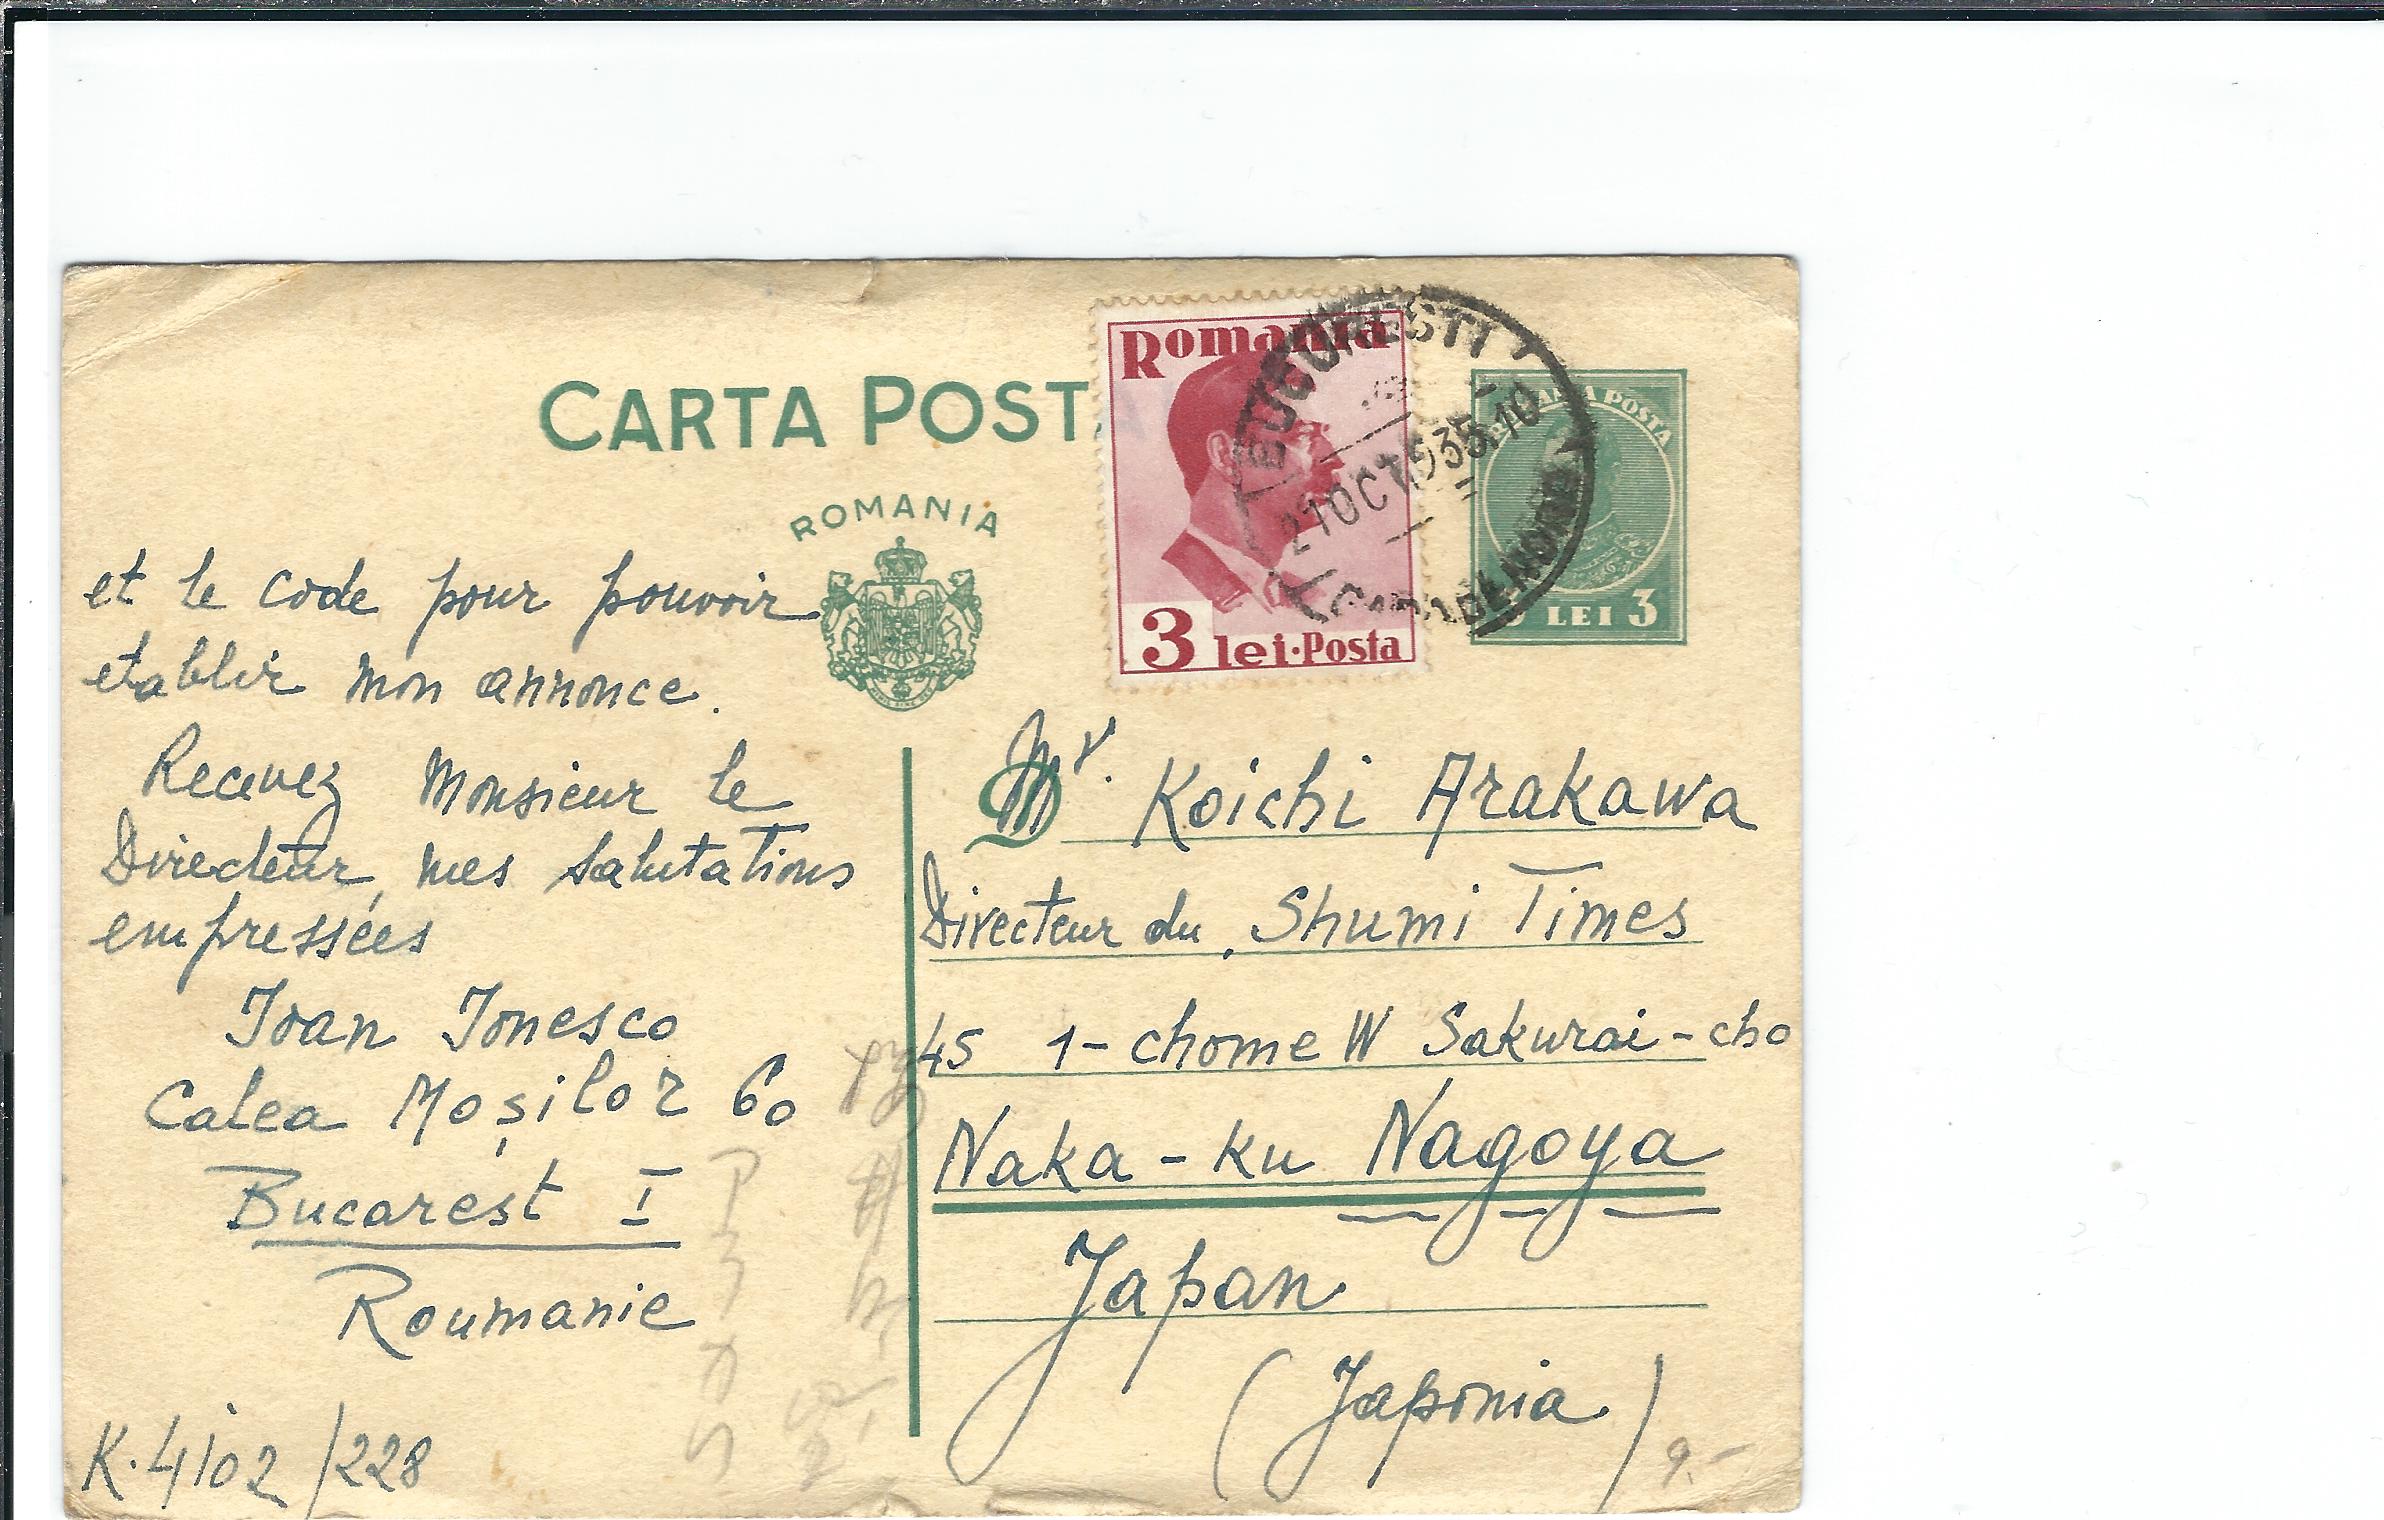 CARTA POST
ROMANIA
Romania
3 lei·Posta
BUCURESTI
21OCT.935.10
ROMANIA POSTA
LEI 3
et le code pour pouvoir
etablir mon annonce.
Recevez Monsieur le
Directeur, mes salutations
empressées
Ioan Ionesco
Calea Moșilor 60
Bucarest I
Roumanie
K.4102/228
D
Mr. Koichi Arakawa
Directeur du Shumi Times
45 1-chome W Sakurai-cho
Naka-ku Nagoya
Japan
(Japonia)
9.-